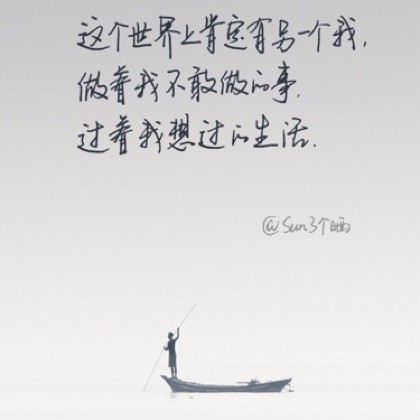 这个世界上肯定有另一个我,
做着我不敢做的事.
过着我想过的生活.
@Sun3个晒